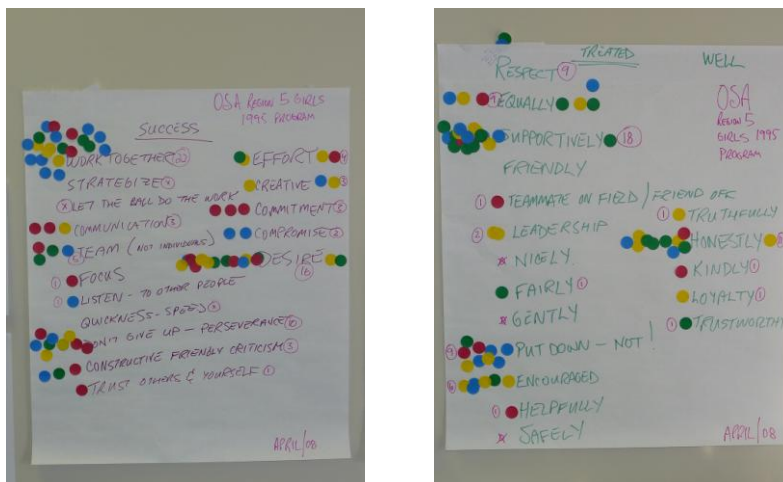 OSA REGION 5 GIRLS
1995 PROGRAM
SUCCESS
WORK TOGETHER
STRATEGIZE
LET THE BALL DO THE WORK
COMMUNICATION
TEAM (NOT INDIVIDUAL)
FOCUS
LISTEN - TO OTHER PEOPLE
QUICKNESS - SPEED
DON'T GIVE UP - PERSEVERANCE
CONSTRUCTIVE FRIENDLY CRITICISM
TRUST OTHERS & YOURSELF 1
EFFORT
CREATIVE
COMMITMENT
COMPROMISE
DESIRE
16
APRIL/08
TREATED WELL
RESPECT 9
EQUALLY
SUPPORTIVELY 18
FRIENDLY
1 TEAMMATE ON FIELD / FRIEND OFF
2 LEADERSHIP
NICELY
FAIRLY 1
GENTLY
PUT DOWN - NOT!
ENCOURAGED
1 HELPFULLY
SAFELY
OSA
REGION 5
GIRLS 1995
PROGRAM
1 TRUTHFULLY
HONESTLY
KINDLY 1
LOYALTY 1
1 TRUSTWORTHY
APRIL/08